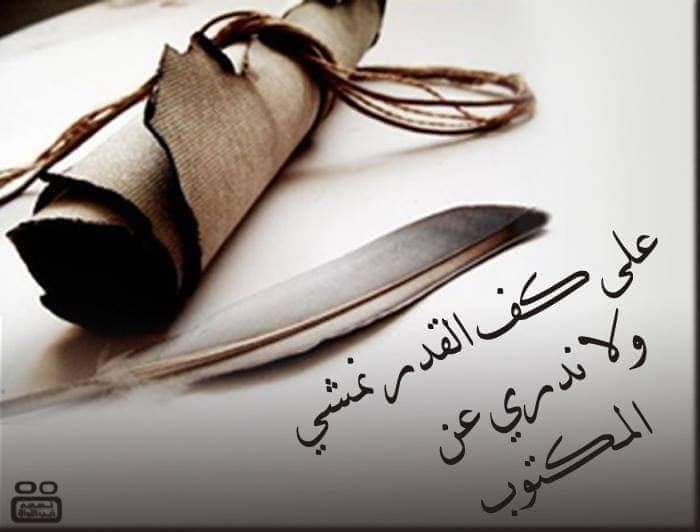 على كف القدر نمشي
ولا ندري عن
المكتوب